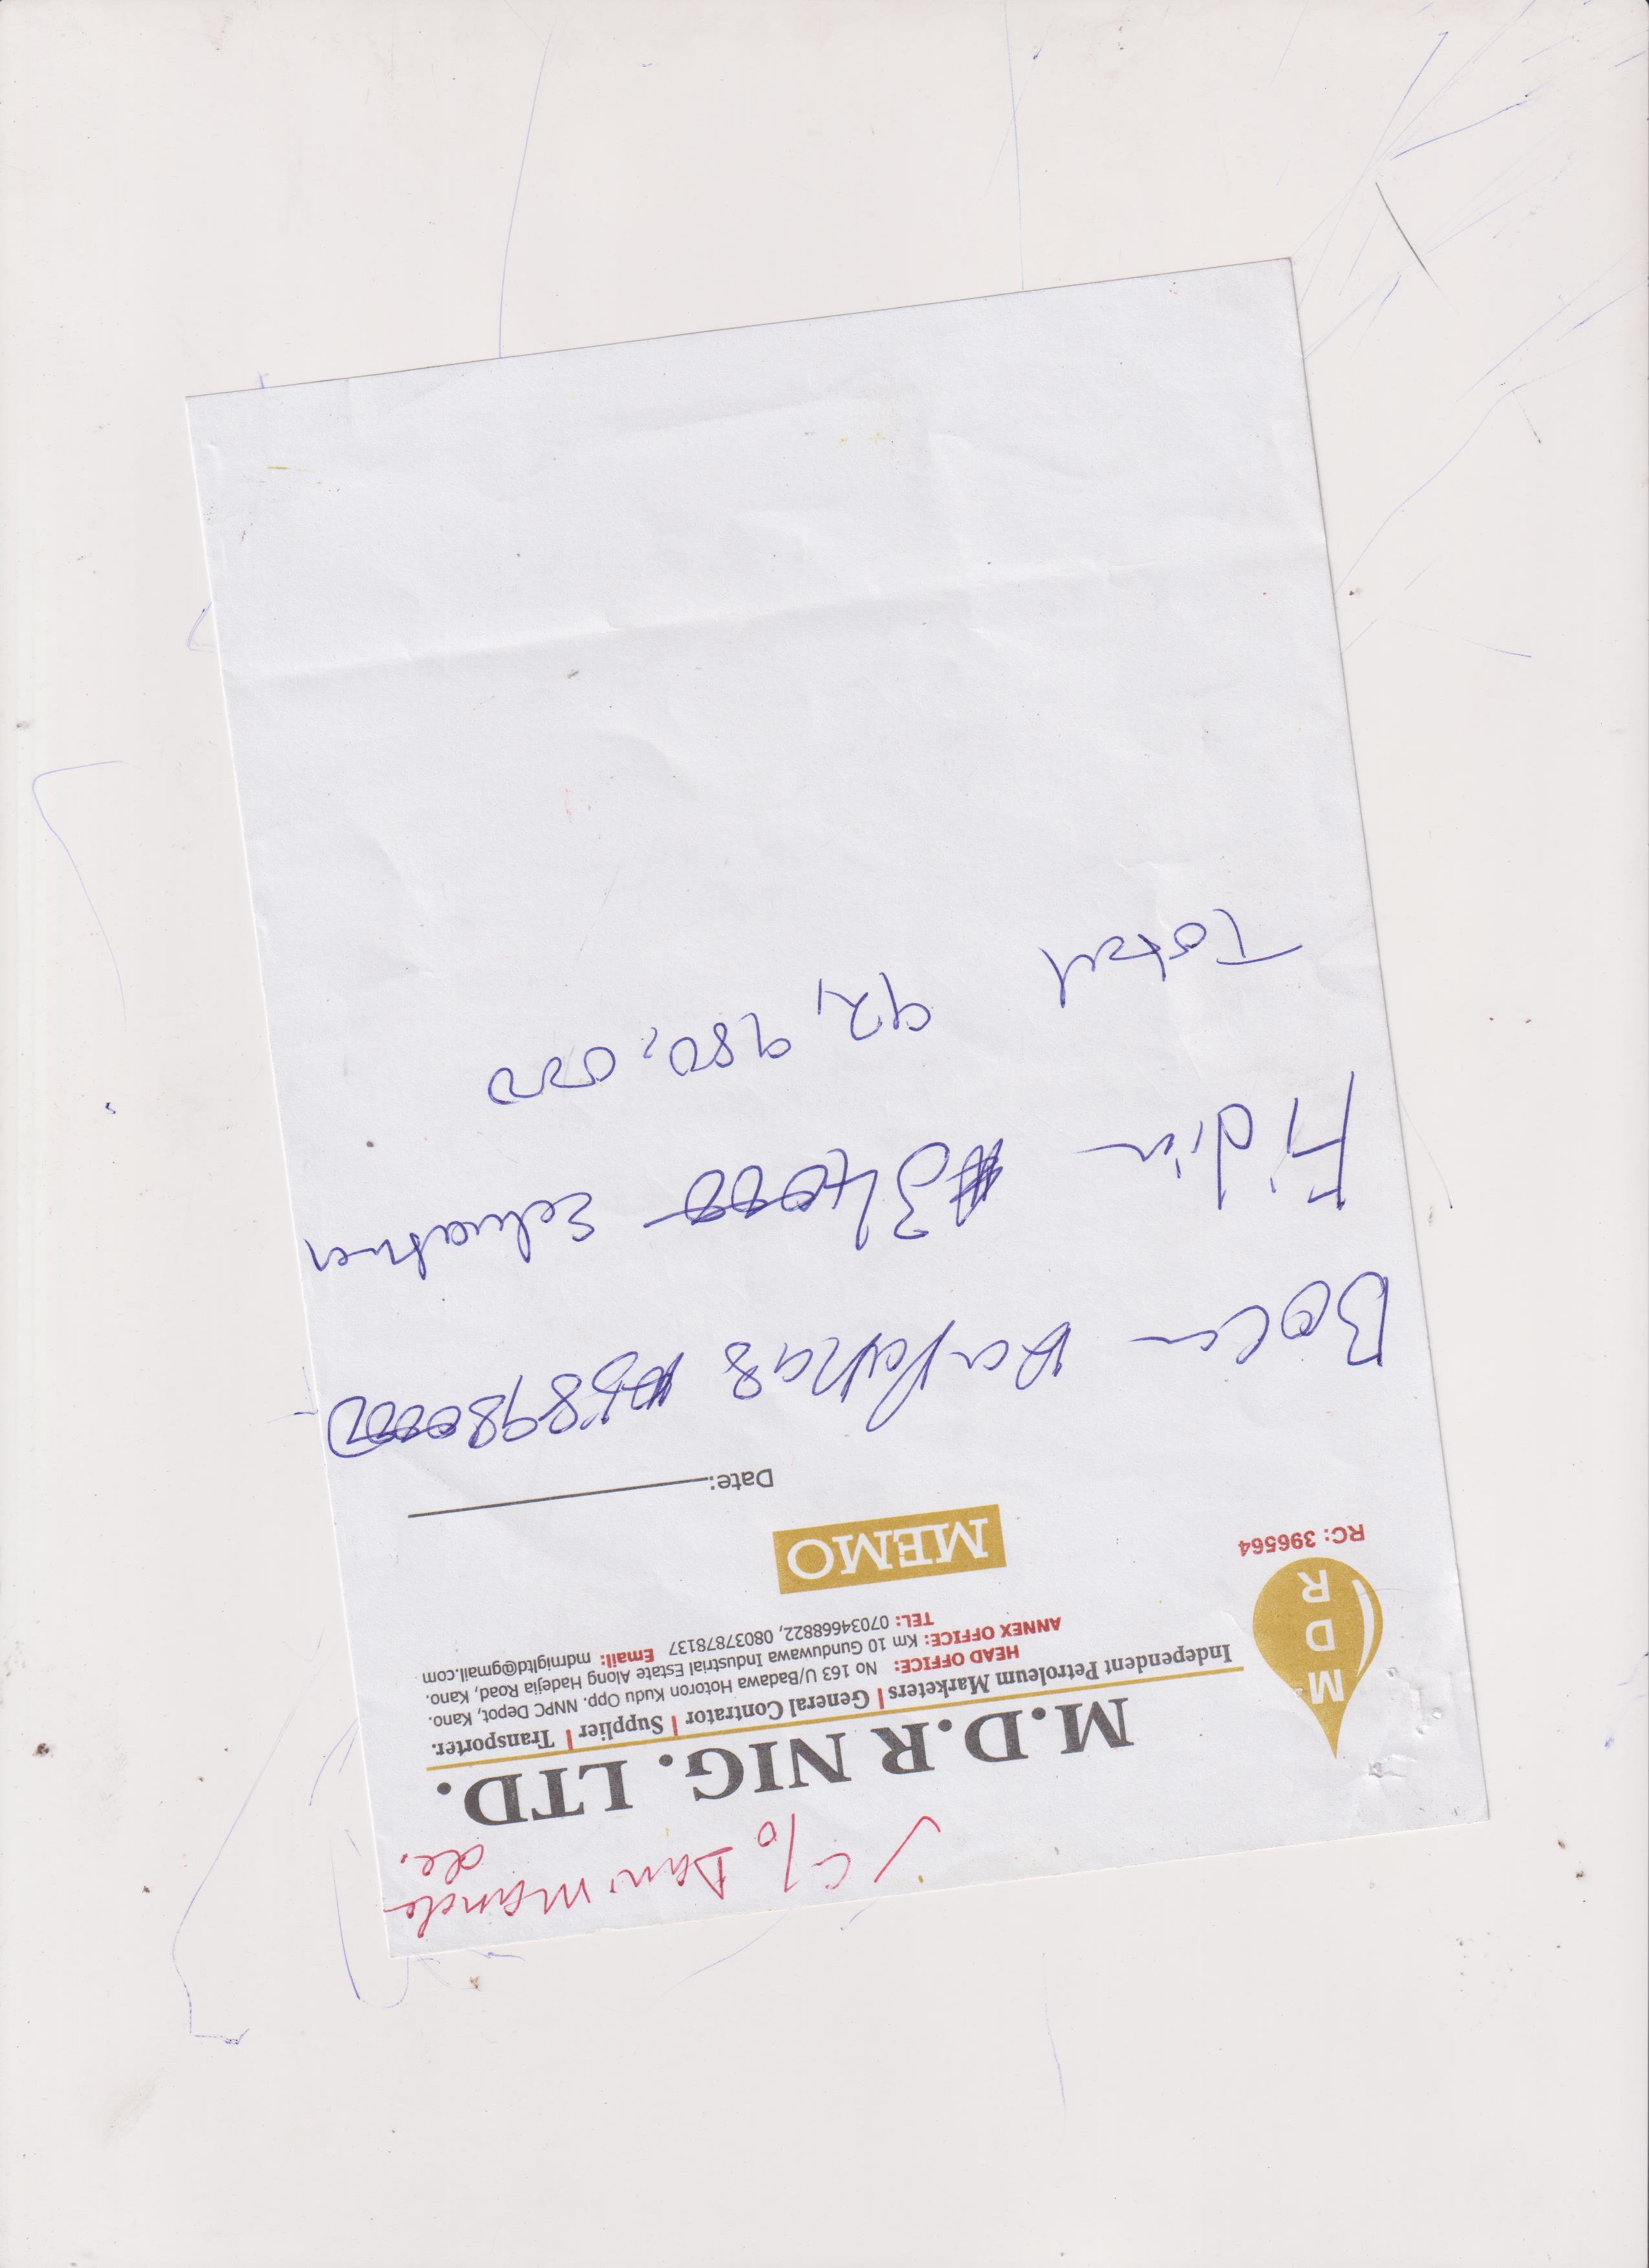 ✓ C/o Dan Mande
de.
M.D.R NIG. LTD.
Independent Petroleum Marketers | General Contrator | Supplier | Transporter.
HEAD OFFICE: No 163 U/Badawa Hotoron Kudu Opp. NNPC Depot, Kano.
ANNEX OFFICE: Km 10 Gunduwawa Industrial Estate Along Hadejia Road, Kano.
TEL: 07034668822, 08037878137 Email: mdrnigltd@gmail.com
M
D
R
RC: 396564
MEMO
Date:
Boca - #5898000
Fidin - #34000 Education
Total 92,980,000